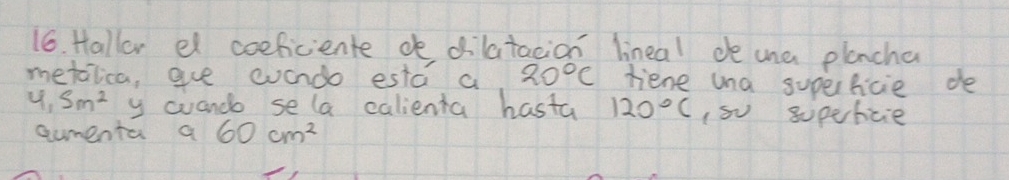 16. Hallar el coeficiente de dilatación lineal de una plancha
metálica, que cuando está a 20°C tiene una superficie de
4,5m² y cuando se la calienta hasta 120°C, su superficie
aumenta a 60 cm²